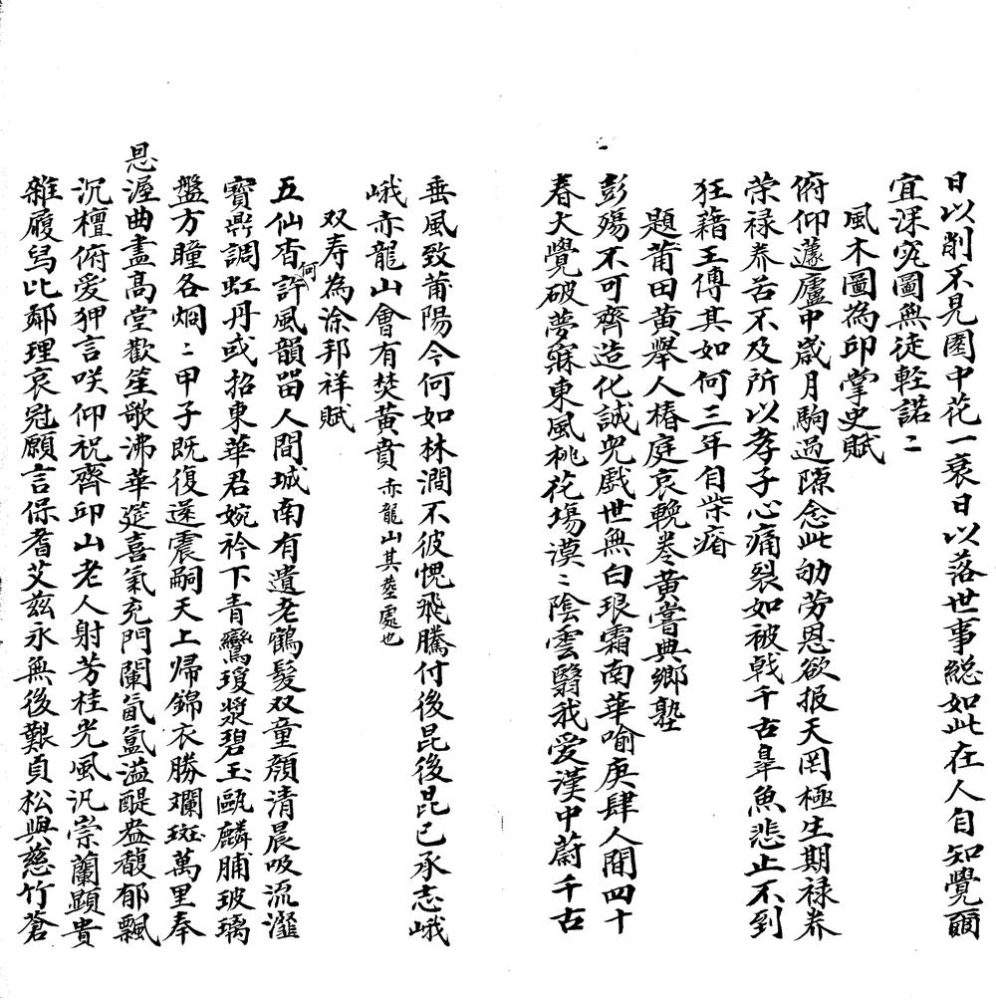 日以削不見園中花一衰日以落世事総如此在人自知覺爾
宜深究圖無徒軽諾〻
風木圖為印掌史賦
俯仰蘧廬中歲月駒過隙念此劬劳恩欲报天罔極生期禄养
荣禄养苦不及所以孝子心痛裂如被戟千古皐魚悲止不到
狂藉王傅其如何三年自柴瘠
題莆田黄舉人椿庭哀輓卷黄嘗典鄉塾
彭殤不可齊造化誠兒戲世無白琅霜南華喻庚肆人間四十
春大覺破夢寐東風桃花塲漠〻陰雲翳我爱漢中蔚千古
垂風致莆陽今何如林澗不彼愧飛騰付後昆後昆已承志峨
峨赤龍山會有焚黄賁 赤龍山其塟處也
双寿為涂邦祥賦
五仙杳何許風韻畄人間城南有遺老鶴髮双童顔清晨吸流瀣
寳鼎調虹丹或招東華君婉衿下青鸞瓊漿碧玉甌麟脯玻璃
盤方瞳各烱〻甲子既復遂震嗣天上帰錦衣勝斕斑萬里奉
恩渥曲盡高堂歡笙歌沸華筵喜氣充門闌氤氳溢醍盎馥郁飄
沉檀俯爱狎言咲仰祝齊邱山老人射芳桂光風汎崇蘭顕貴
雜履舄比鄰理裒冠願言保耆艾兹永無後艱貞松與慈竹蒼